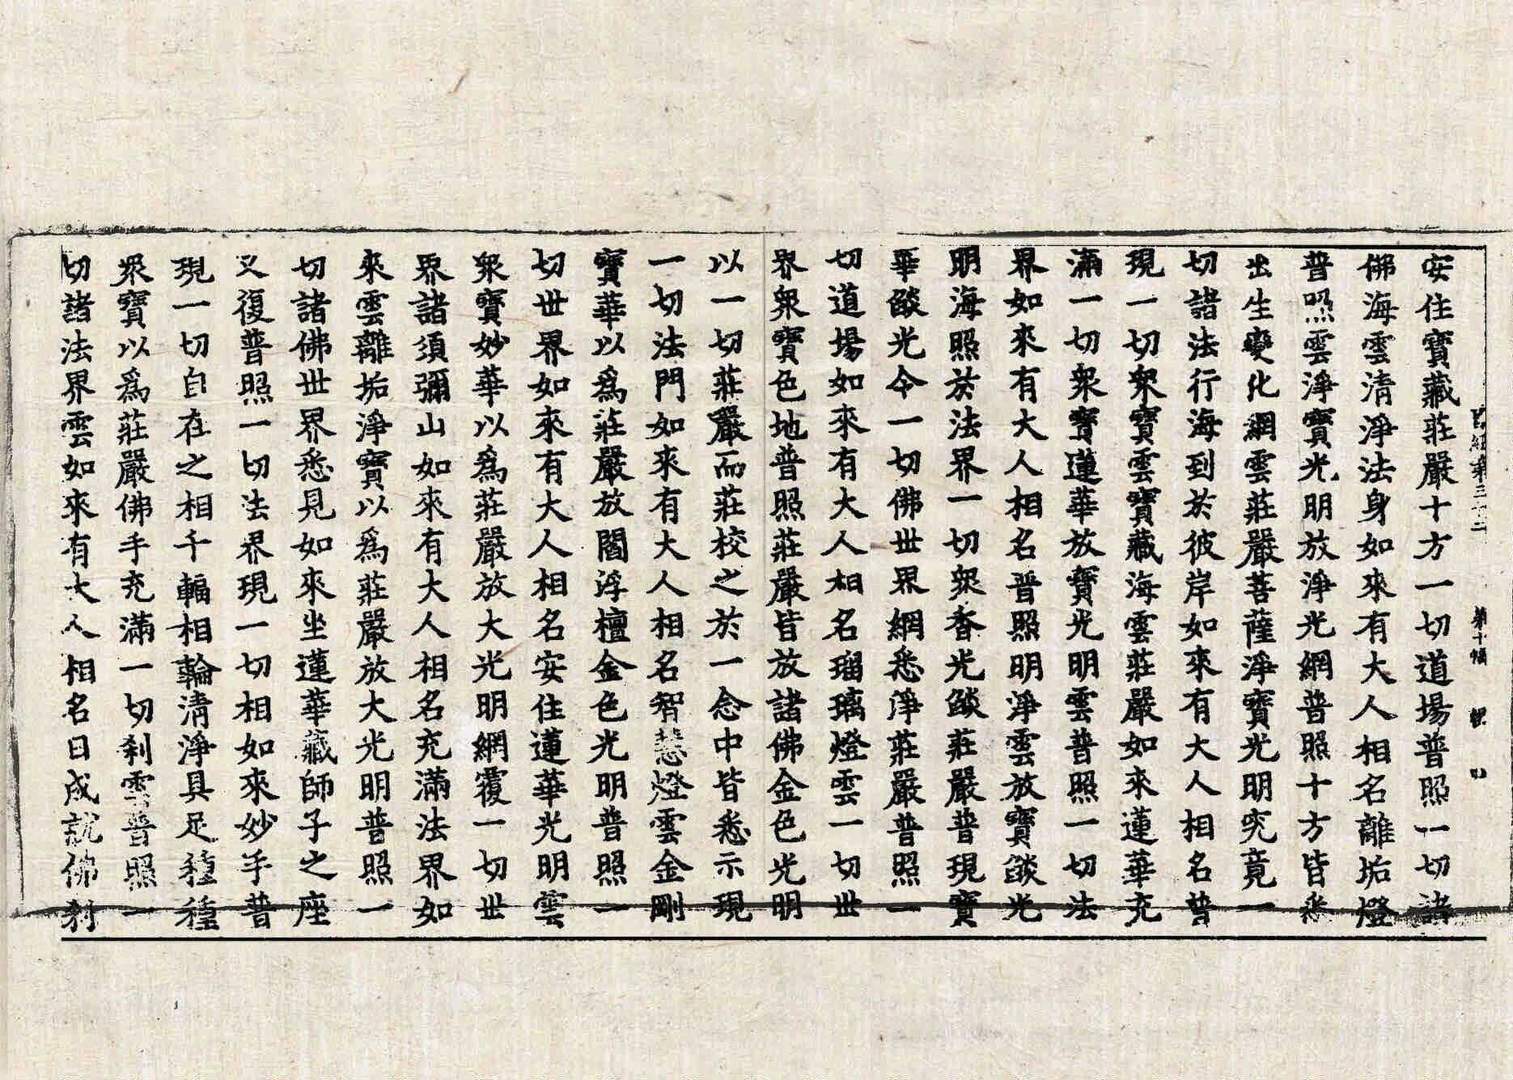 經第三十二 第十幅
安住寶藏莊嚴十方一切道場普照一切諸
佛海雲清淨法身如來有大人相名離垢燈
普照雲淨寶光明放淨光網普照十方皆悉
出生變化網雲莊嚴菩薩淨寶光明究竟一
切諸法行海到於彼岸如來有大人相名普
現一切衆寶雲寶藏海雲莊嚴如來蓮華充
滿一切衆寶蓮華放寶光明雲普照一切法
界如來有大人相名普照明淨雲放寶燄光
明海照於法界一切衆香光燄莊嚴普現寶
華燄光令一切佛世界網悉淨莊嚴普照一
切道場如來有大人相名瑠璃燈雲一切世
界衆寶色地普照莊嚴皆放諸佛金色光明
以一切莊嚴而莊校之於一念中皆悉示現
一切法門如來有大人相名智慧燈雲金剛
寶華以爲莊嚴放閻浮檀金色光明普照一
切世界如來有大人相名安住蓮華光明雲
衆寶妙華以爲莊嚴放大光明網覆一切世
界諸須彌山如來有大人相名充滿法界如
來雲離垢淨寶以爲莊嚴放大光明普照一
切諸佛世界悉見如來坐蓮華藏師子之座
又復普照一切法界現一切相如來妙手普
現一切自在之相千輻相輪清淨具足種種
衆寶以爲莊嚴佛手充滿一切刹雲普照一
切諸法界雲如來有大人相名曰成就佛刹